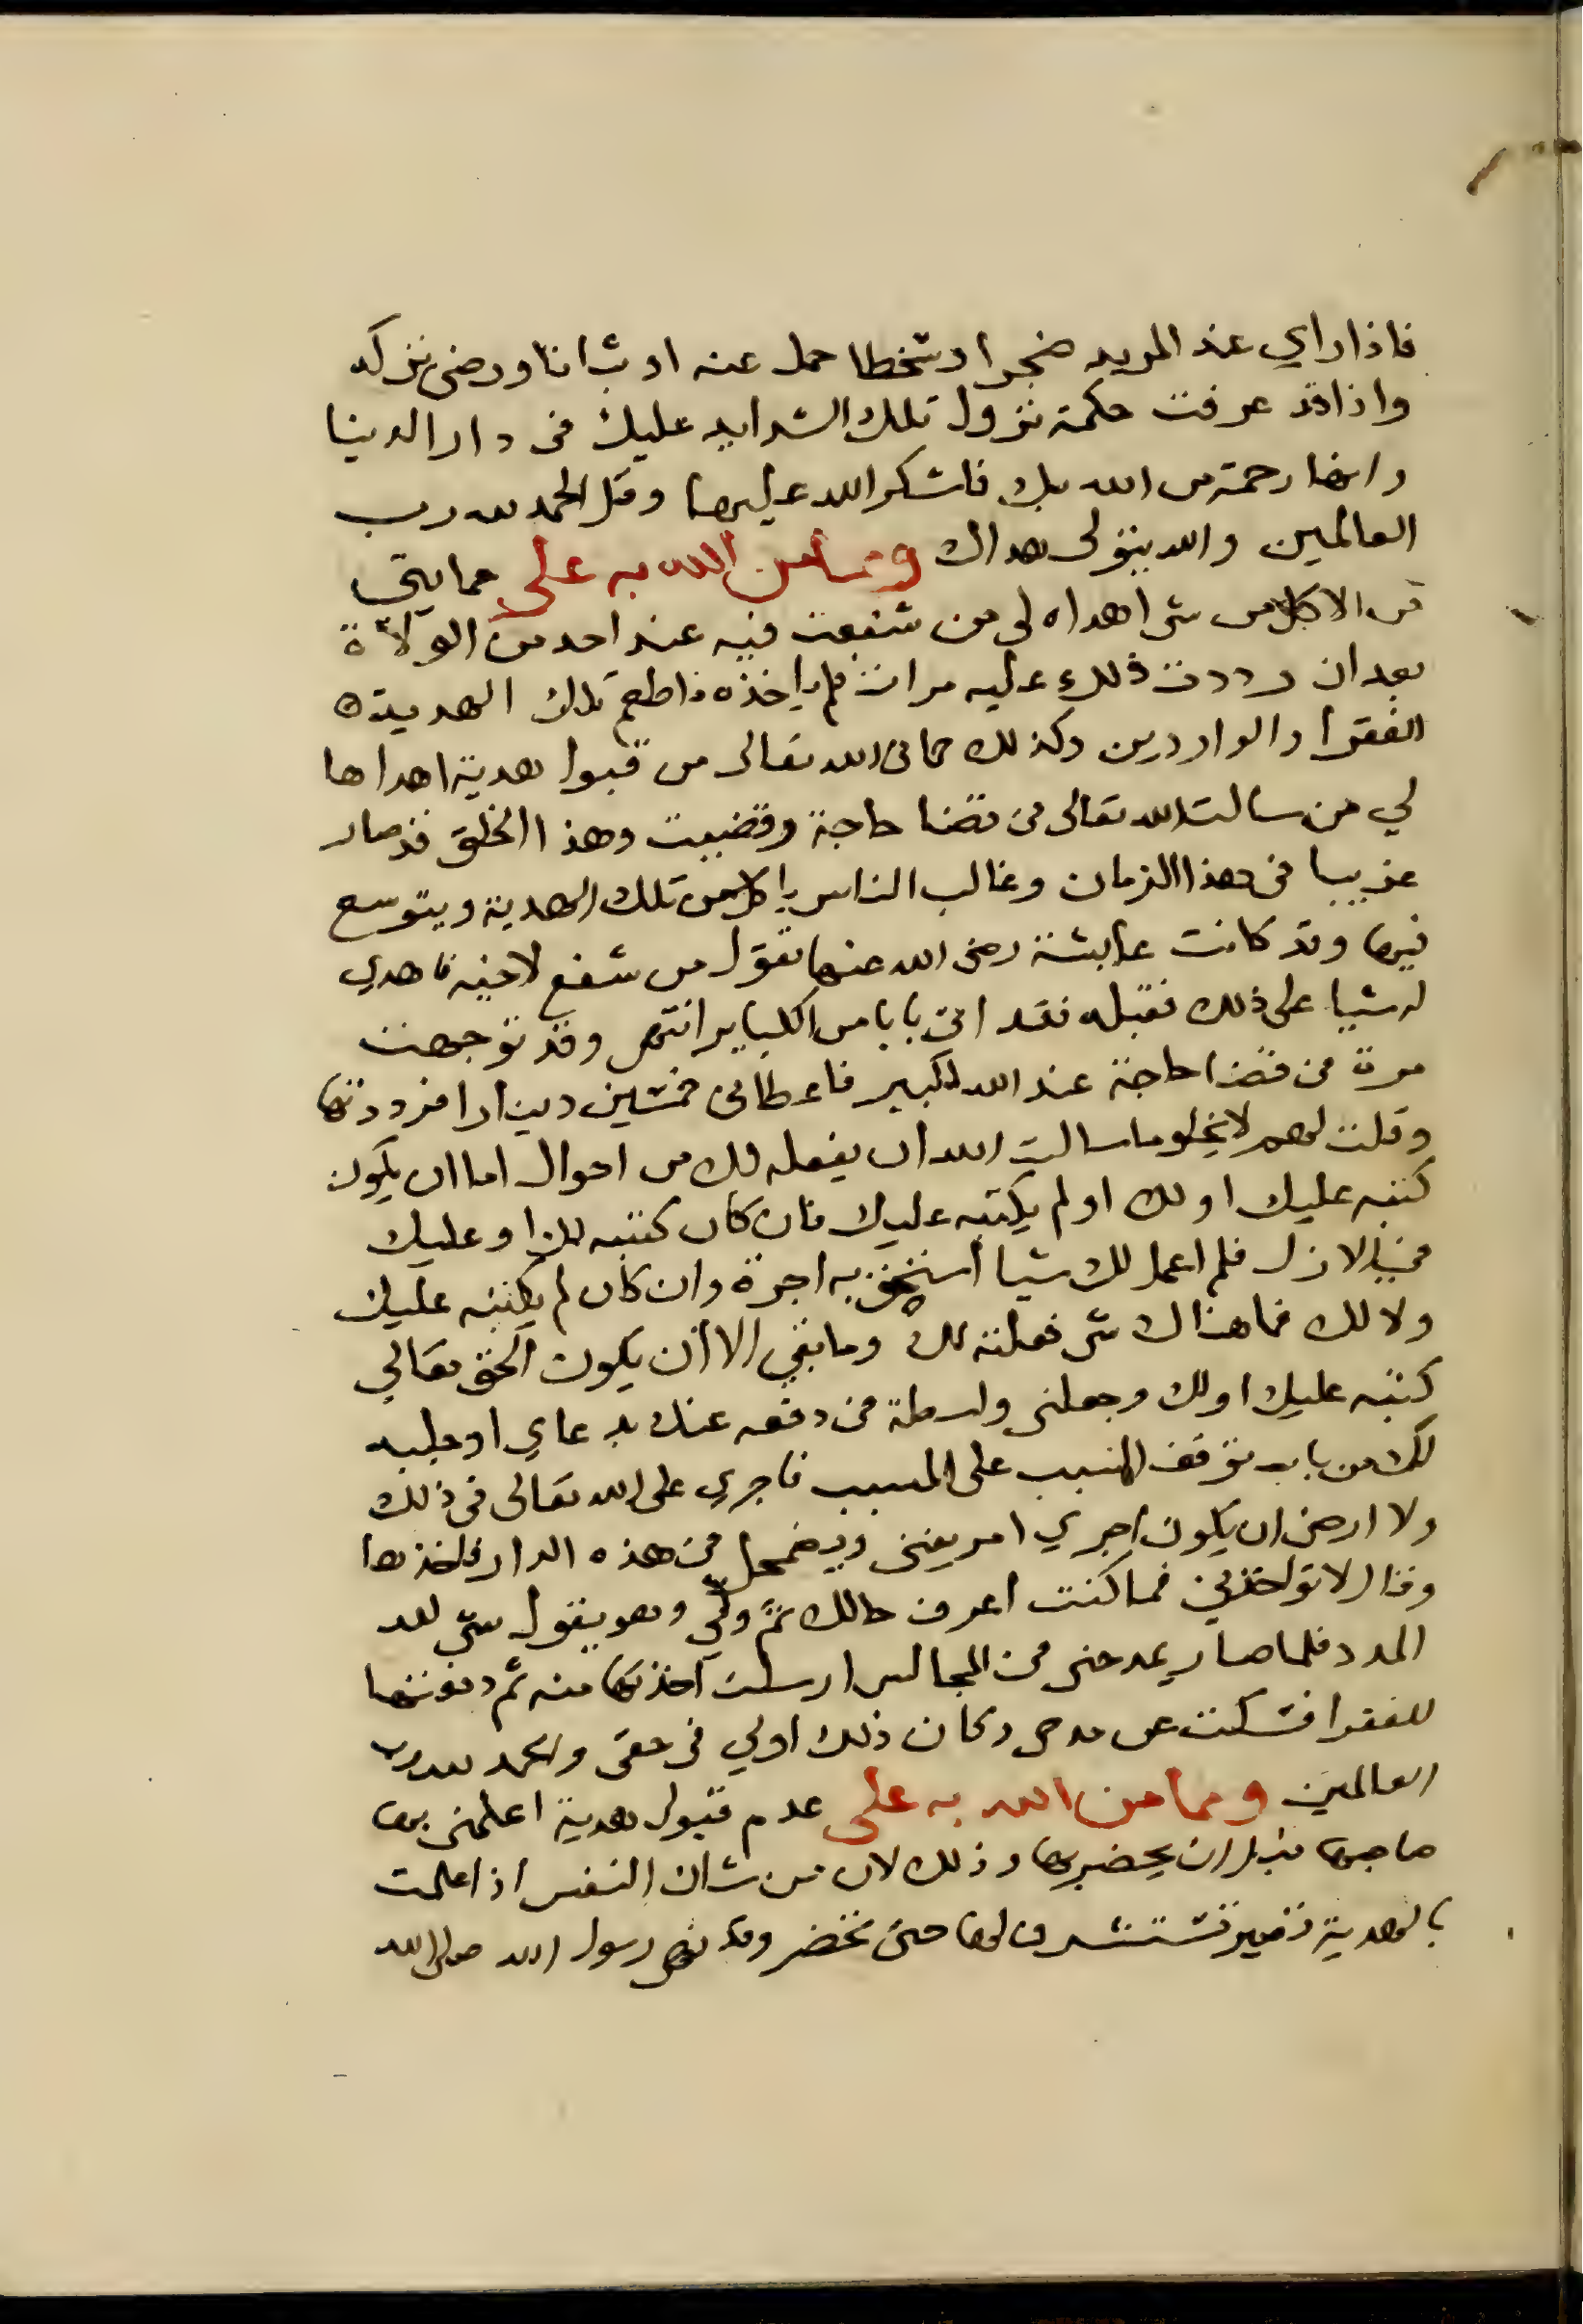 فاذا راي عند المريد ضجرا وتسخطا حمل عنه او شانا ورضى بتركه
واذا قد عرفت حكمة نزول تلك الشدايد عليك فى دار الدنيا
وانها رحمة من الله بك فاشكر الله عليها وقل الحمد لله رب
العالمين والله يتولى هداك ومما من الله به على حمايتى
من الاكل من شى اهداه لى من شفعت فيه عند احد من الولاة
بعد ان رددت ذلك عليه مرات فلم ياخذه فاطعم تلك الهدية
الفقرا والواردين وكذلك حمانى الله تعالى من قبول هدية اهداها
لي من سالت الله تعالى فى قضا حاجة وقضيت وهذا الخلق قد صار
غريبا فى هذا الزمان وغالب الناس ياكل من تلك الهدية ويتوسع
فيها وقد كانت عايشة رضى الله عنها تقول من شفع لاخيه فاهدي
له شيا على ذلك فقبله فقد اتى بابا من الكباير انتهى وقد توجهت
مرة فى قضا حاجة عند الله لكبير فاعطانى خمسين دينارا فرددتها
وقلت لهم لا يخلو ما سالت الله ان يفعله لك من احوال اما ان يكون
كتبه عليك او لك او لم يكتبه عليك فان كان كتبه لك او عليك
فى الازل فلم اعمل لك شيا استحق به اجرة وان كان لم يكتبه عليك
ولا لك فما هناك شى فعلته لك وما بقي الا ان يكون الحق تعالي
كتبه عليك او لك وجعلنى واسطة فى دفعه عنك بدعاي او جلبه
لك من باب توقف السبب على المسبب فاجري على الله تعالى فى ذلك
ولا ارضى ان يكون اجري امر يفنى ويضمحل فى هذه الدار فاخذها
وقال لا تواخذني فما كنت اعرف حالك ثم ولي وهو يقول شى لله
المدد فلما صار يمدحنى فى المجالس ارسلت اخذتها منه ثم دفعتها
للفقرا فسكت عن مدحى وكان ذلك اولي فى حقى والحمد لله رب
العالمين ومما من الله به على عدم قبول هدية اعلمنى بها
صاحبها قبل ان يحضر بها وذلك لان من شان النفس اذا علمت
بالهدية تصير تستشرف لها حتى تحضر وقد نهى رسول الله صلى الله